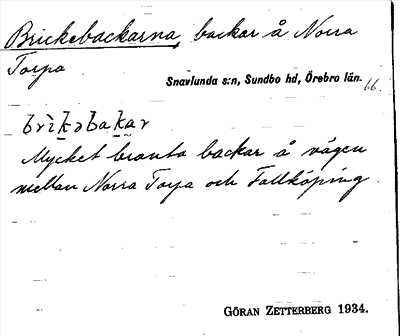 Brickebackarna, backar å Norra
Torpa
Snavlunda s:n, Sundbo hd, Örebro län. 66.
brìk̲əbak̲ar
Mycket branta backar å vägen
mellan Norra Torpa och Fallköping.
GÖRAN ZETTERBERG 1934.